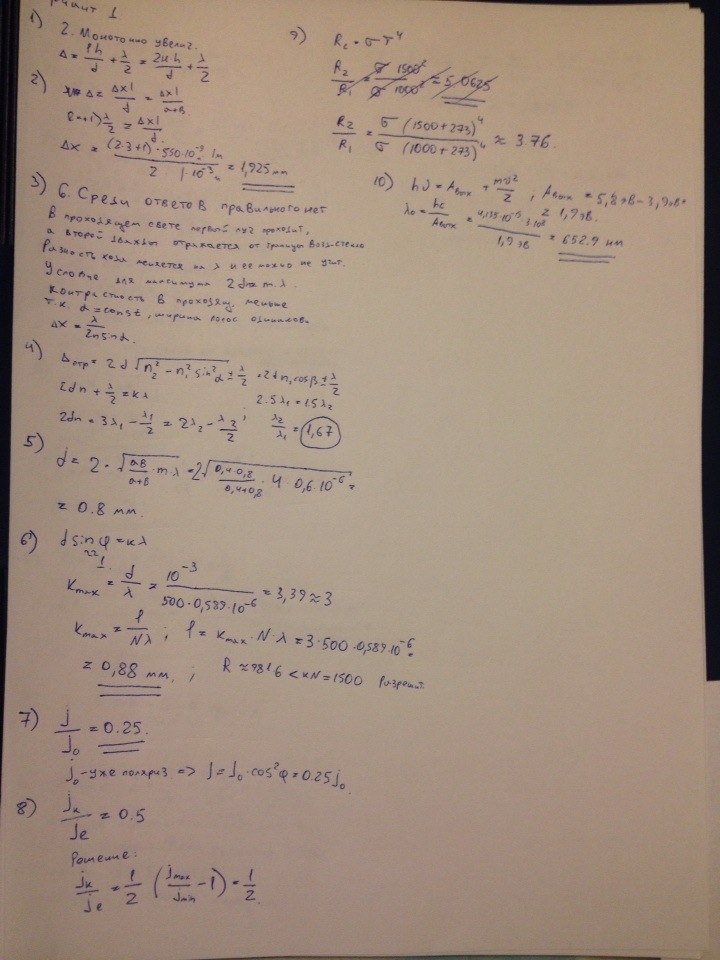 риант 1
1) 2. Монотонно увелич.
Δ = lh/d + λ/2 = 2xh/d + λ/2
2) Δ = Δxl/d = Δxl/a+b
(2k+1) λ/2 = Δxl/d.
Δx = (2·3+1)·550·10⁻⁹ м · 1м / 2 · 1·10⁻³ м = 1,925 мм
3) 6. Среди ответов правильного нет
В проходящем свете первый луч проходит,
а второй дважды отражается от границы Воздух-стекло
Разность хода меняется на λ и ее можно не учит.
Условие для максимума 2dn = mλ.
Контрастность в проходящ. меньше
т.к. α = const, ширина полос одинакова
Δx = λ/2n sinα.
4) Δотр = 2d √(n₂² − n₁² sin²α) ± λ/2 = 2dn, cosβ ± λ/2
2dn + λ/2 = kλ
2.5λ₁ = 1.5λ₂
2dn = 3λ₁ − λ₁/2 = 2λ₂ − λ₂/2 ; λ₂/λ₁ = 1,67
5) d = 2 · √(aB/a+B mλ) = 2√(0,4·0,8/0,4+0,8 · 4 · 0,6·10⁻⁶) =
= 0.8 мм.
6) d sinφ = kλ
≈1
kmax = d/λ = 10⁻³/500·0,589·10⁻⁶ = 3,39 ≈ 3
kmax = l/Nλ ; l = kmax·N·λ = 3·500·0,589·10⁻⁶ =
= 0,88 мм. ; R ≈ 981,6 < kN = 1500 Разрешит.
7) j/j₀ = 0.25.
j₀ - уже поляриз => j = j₀·cos²φ = 0.25j₀.
8) jk/je = 0.5
Решение:
jk/je = 1/2 (jmax/jmin − 1) = 1/2.
9) Rc = σT⁴
R₂/R₁ = σ 1500²/σ 1000² ≈ 5,0625
R₂/R₁ = σ (1500+273)⁴/σ (1000+273)⁴ ≈ 3.76.
10) hν = Aвых + mv²/2 ; Aвых = 5,8эВ − 3,9эВ =
= 1,9эВ.
λ₀ = hc/Aвых = 4,135·10⁻¹⁵·3·10⁸/1,9эВ = 652.9 нм